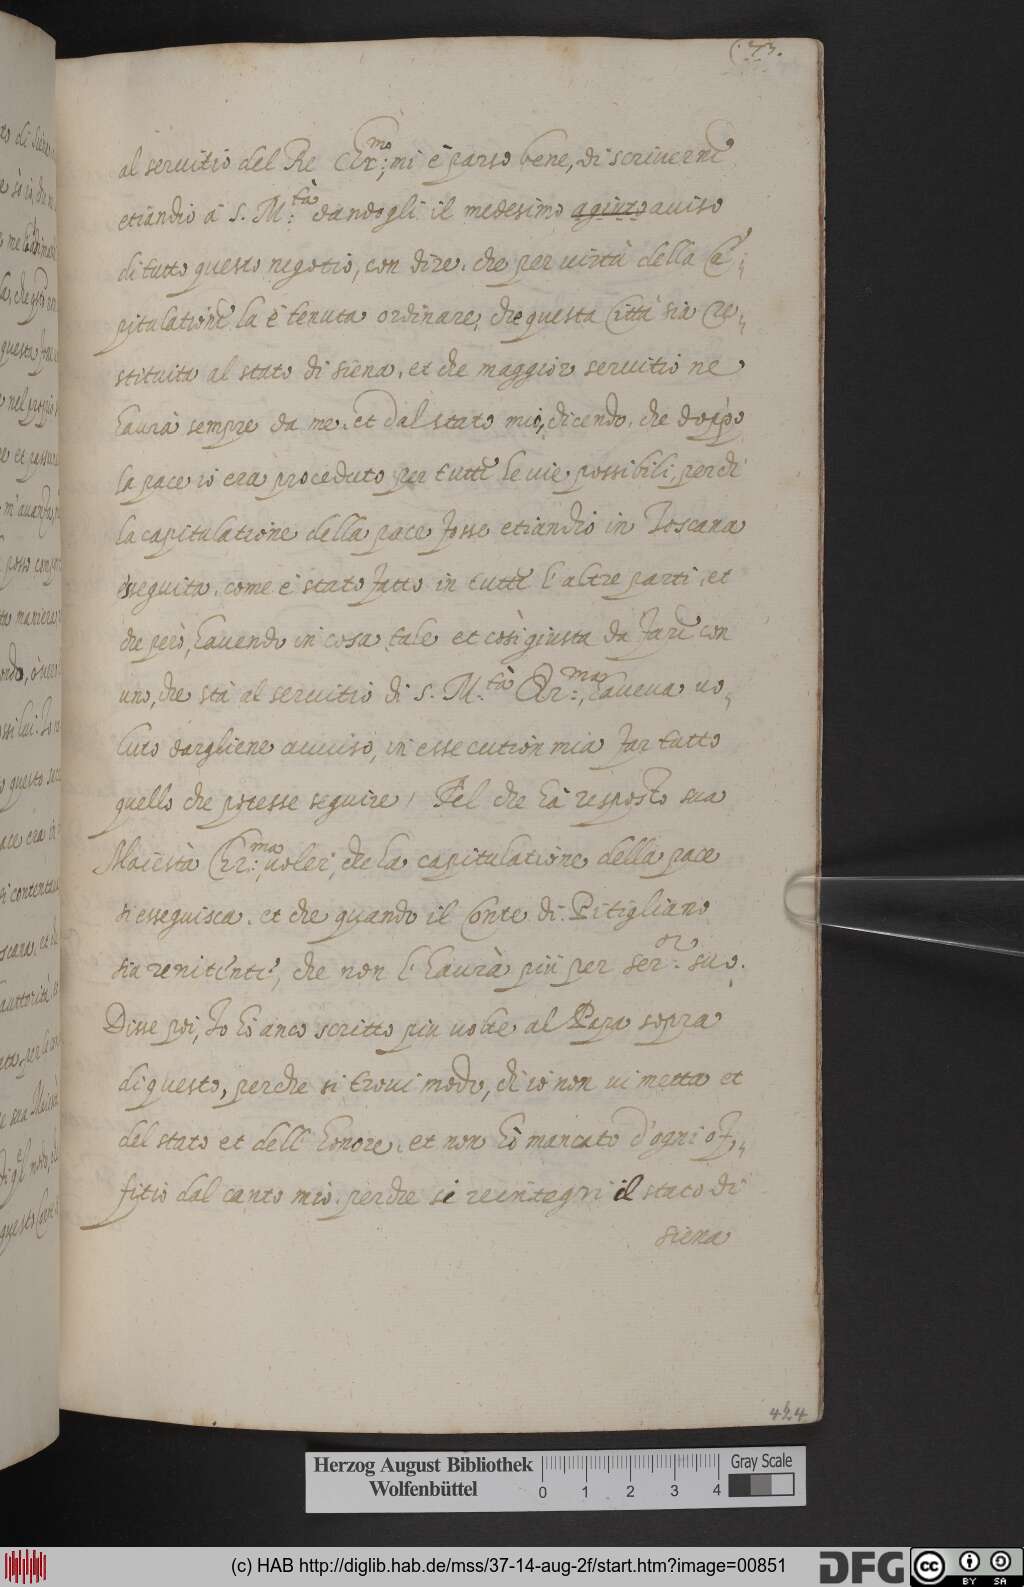 73.
al seruitio del Re Chr:mo, mi è parso bene, di scriuerne
etiandio à S. M:tà dandogli il medesimo auiso
di tutto questo negotio, con dire, che per uirtù della Ca„
pitulatione la è tenuta ordinare, che questa Città sia re„
stituita al stato di Siena, et che maggior seruitio ne
haurà sempre da me, et dal stato mio, dicendo, che doppo
la pace io era proceduto per tutte le uie possibili, perche
la capitulatione della pace fosse etiandio in Toscana
esseguita, come è stato fatto in tutte l'altre parti, et
che però, hauendo in cosa tale et così giusta da fare con
uno, che stà al seruitio di S. M.tà Chr:ma, haueua uo„
luto dargliene auuiso, in essecution mia far tutto
quello che potesse seguire. Del che hà risposto sua
Maiestà Chr:ma, uoler, che la capitulatione della pace
si esseguisca, et che quando il Conte di Pitigliano
sia renitente, che non l'haurà più per ser.or suo.
Disse poi, Io hò anco scritto piu uolte al Papa sopra
di questo, perche si troui modo, ch'io non ui metta et
del stato et dell'honore, et non hò mancato d'ogni of„
fitio dal canto mio, perche si reintegri il stato di
Siena
424
Herzog August Bibliothek
Wolfenbüttel
0 1 2 3 4
Gray Scale
(c) HAB http://diglib.hab.de/mss/37-14-aug-2f/start.htm?image=00851
DFG
cc BY SA